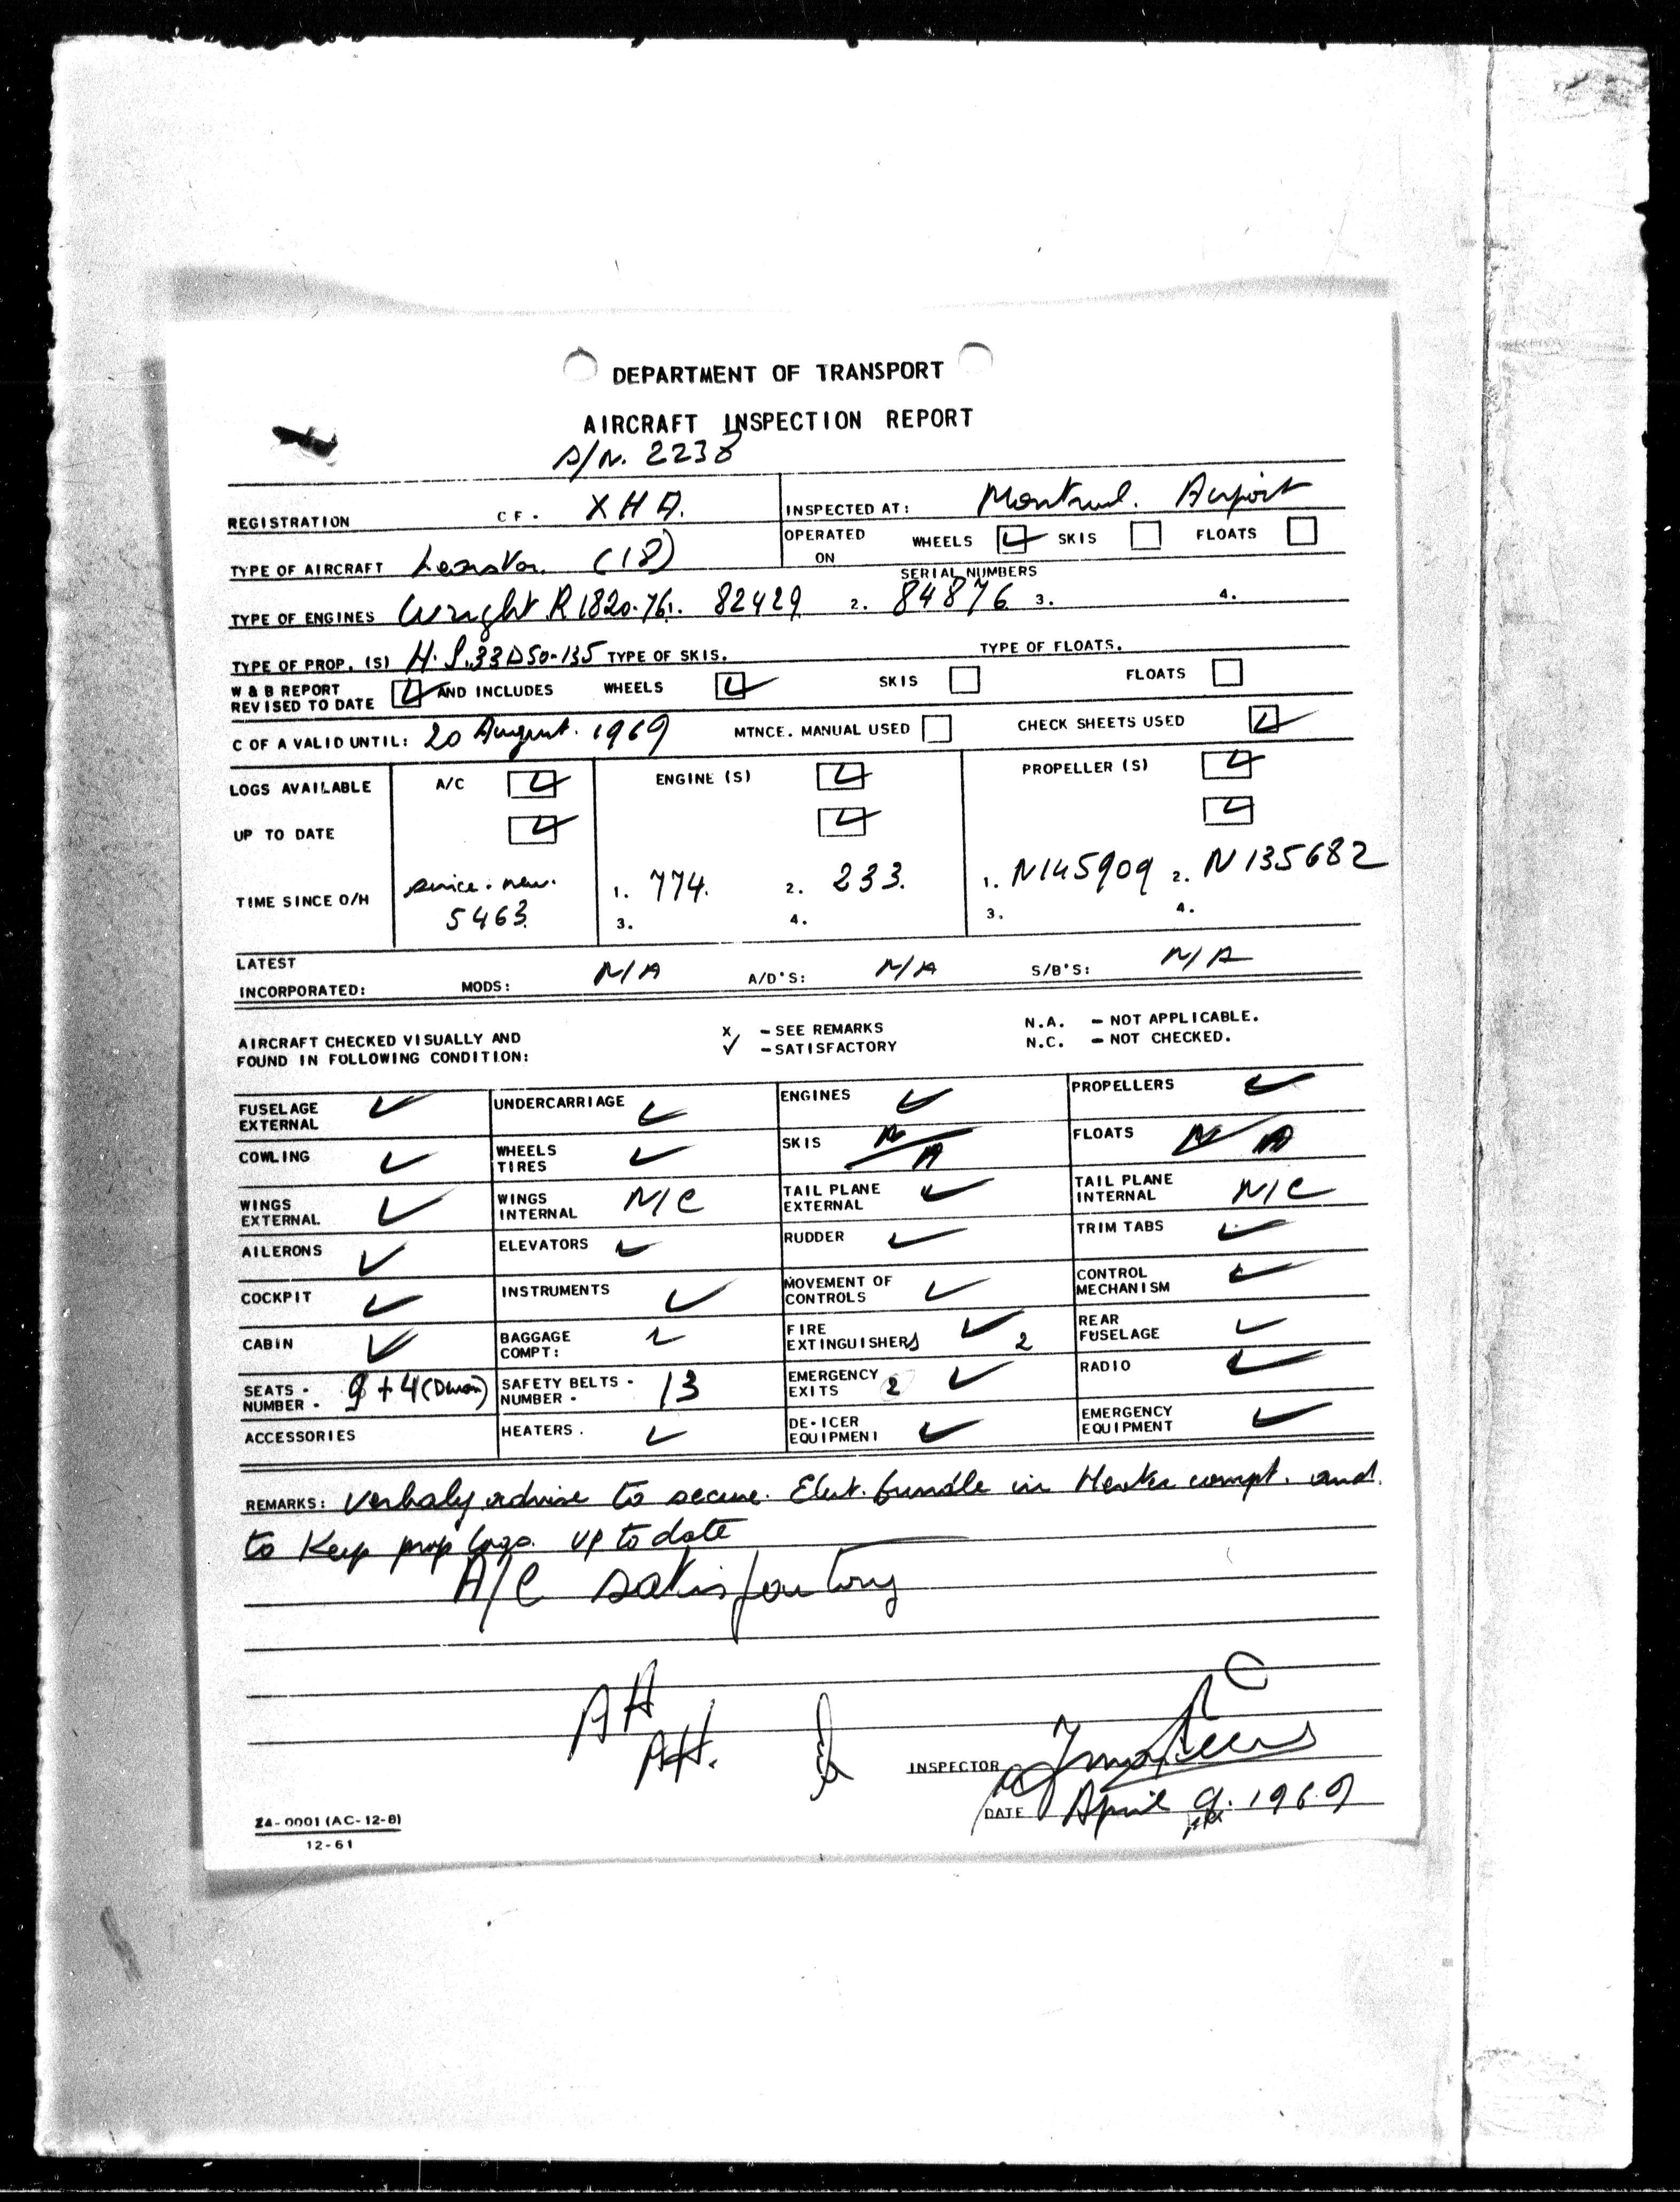 DEPARTMENT OF TRANSPORT
AIRCRAFT INSPECTION REPORT
S/N. 2238
REGISTRATION CF. XHA. INSPECTED AT: Montreal. Airport
TYPE OF AIRCRAFT (18) OPERATED ON WHEELS SKIS FLOATS
SERIAL NUMBERS
TYPE OF ENGINES Wright R1820.76. 82429 2. 84876 3. 4.
TYPE OF PROP. (S) H.S.33D50-135 TYPE OF SKIS. TYPE OF FLOATS.
W & B REPORT REVISED TO DATE AND INCLUDES WHEELS SKIS FLOATS
C OF A VALID UNTIL: 20 August. 1969 MTNCE. MANUAL USED CHECK SHEETS USED
LOGS AVAILABLE A/C ENGINE (S) PROPELLER (S)
UP TO DATE
TIME SINCE O/H since. new. 5463. 1. 774. 2. 233. 1. N145909 2. N135682
3. 4. 3. 4.
LATEST
INCORPORATED: MODS: N/A A/D'S: N/A S/B'S: N/A
AIRCRAFT CHECKED VISUALLY AND X - SEE REMARKS N.A. - NOT APPLICABLE.
FOUND IN FOLLOWING CONDITION: ✓ - SATISFACTORY N.C. - NOT CHECKED.
FUSELAGE EXTERNAL ✓ UNDERCARRIAGE ✓ ENGINES ✓ PROPELLERS ✓
COWLING ✓ WHEELS TIRES ✓ SKIS N/A FLOATS N/A
WINGS EXTERNAL ✓ WINGS INTERNAL N/C TAIL PLANE EXTERNAL ✓ TAIL PLANE INTERNAL N/C
AILERONS ✓ ELEVATORS ✓ RUDDER ✓ TRIM TABS ✓
COCKPIT ✓ INSTRUMENTS ✓ MOVEMENT OF CONTROLS ✓ CONTROL MECHANISM ✓
CABIN ✓ BAGGAGE COMPT: ✓ FIRE EXTINGUISHERS ✓ 2 REAR FUSELAGE ✓
SEATS - NUMBER - 9 + 4 (Divan) SAFETY BELTS - NUMBER - 13 EMERGENCY EXITS 2 ✓ RADIO ✓
ACCESSORIES HEATERS. ✓ DE-ICER EQUIPMENT ✓ EMERGENCY EQUIPMENT ✓
REMARKS: Verbaly advise to secure. Elect. bundle in Heater compt. and.
to Keep prop logs. up to date
A/C satisfactory
AH
AH.
INSPECTOR
DATE April 9. 1969
24-0001 (AC-12-8)
12-61